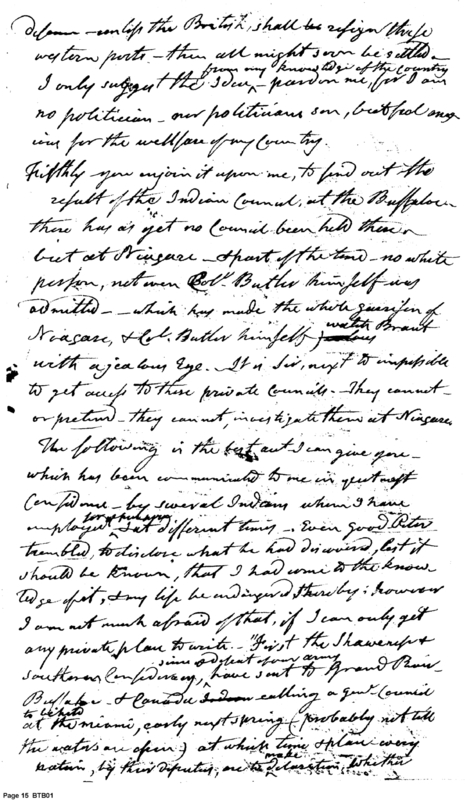 unless the British, shall resign these
western posts – then all might soon be settled –
I only suggest the Idea, from my knowledge of the Country – pardon me, for I am
no politician – nor politicians son, but feel anx
ious for the wellfare of my Country.
Fifthly – you enjoin it upon me, to find out the
result of the Indian Council, at the Buffaloe –
there has as yet no Council been held there –
but at Niagara – & part of the time – no white
person, not even Col. Butler himself was
admitted – which has made the whole garrison of
Niagara, & Col. Butler himself watch Brant
with a jealous Eye. It is Sir, next to impossible
to get access to these private Councils – They cannot –
or pretend – they cannot, investigate them at Niagara
The following is the best acct I can give you –
which has been communicated to me in great
Confidence – by several Indians whom I have
employed for spies at different times – Even good Peter
trembled, to disclose what he had discovered, lest it
should be known, that I had come to the know
ledge of it, & my life be endangered, thereby; however
I am not much afraid of that, if I can only get
any private place to write – "First the Shawenese &
southern Confideracy, since defeat of our army have sent to Grand River
Buffaloe – & Canada calling a genl. Council
to be held at the miami, early next spring (probably not till
the waters are open) at which time & place every
nation, by their deputies, are to make declaration, whether
Page 15 BTB01